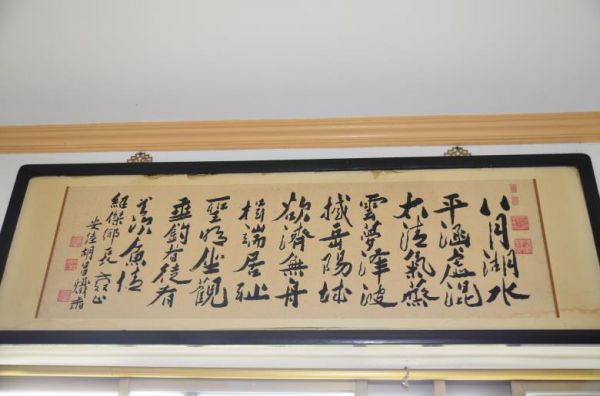 八月湖水
平涵虛混
太清氣蒸
雲夢澤波
撼岳陽城
欲濟無舟
楫端居耻
聖明坐觀
垂釣者徒有
羨魚情
維傑
胡